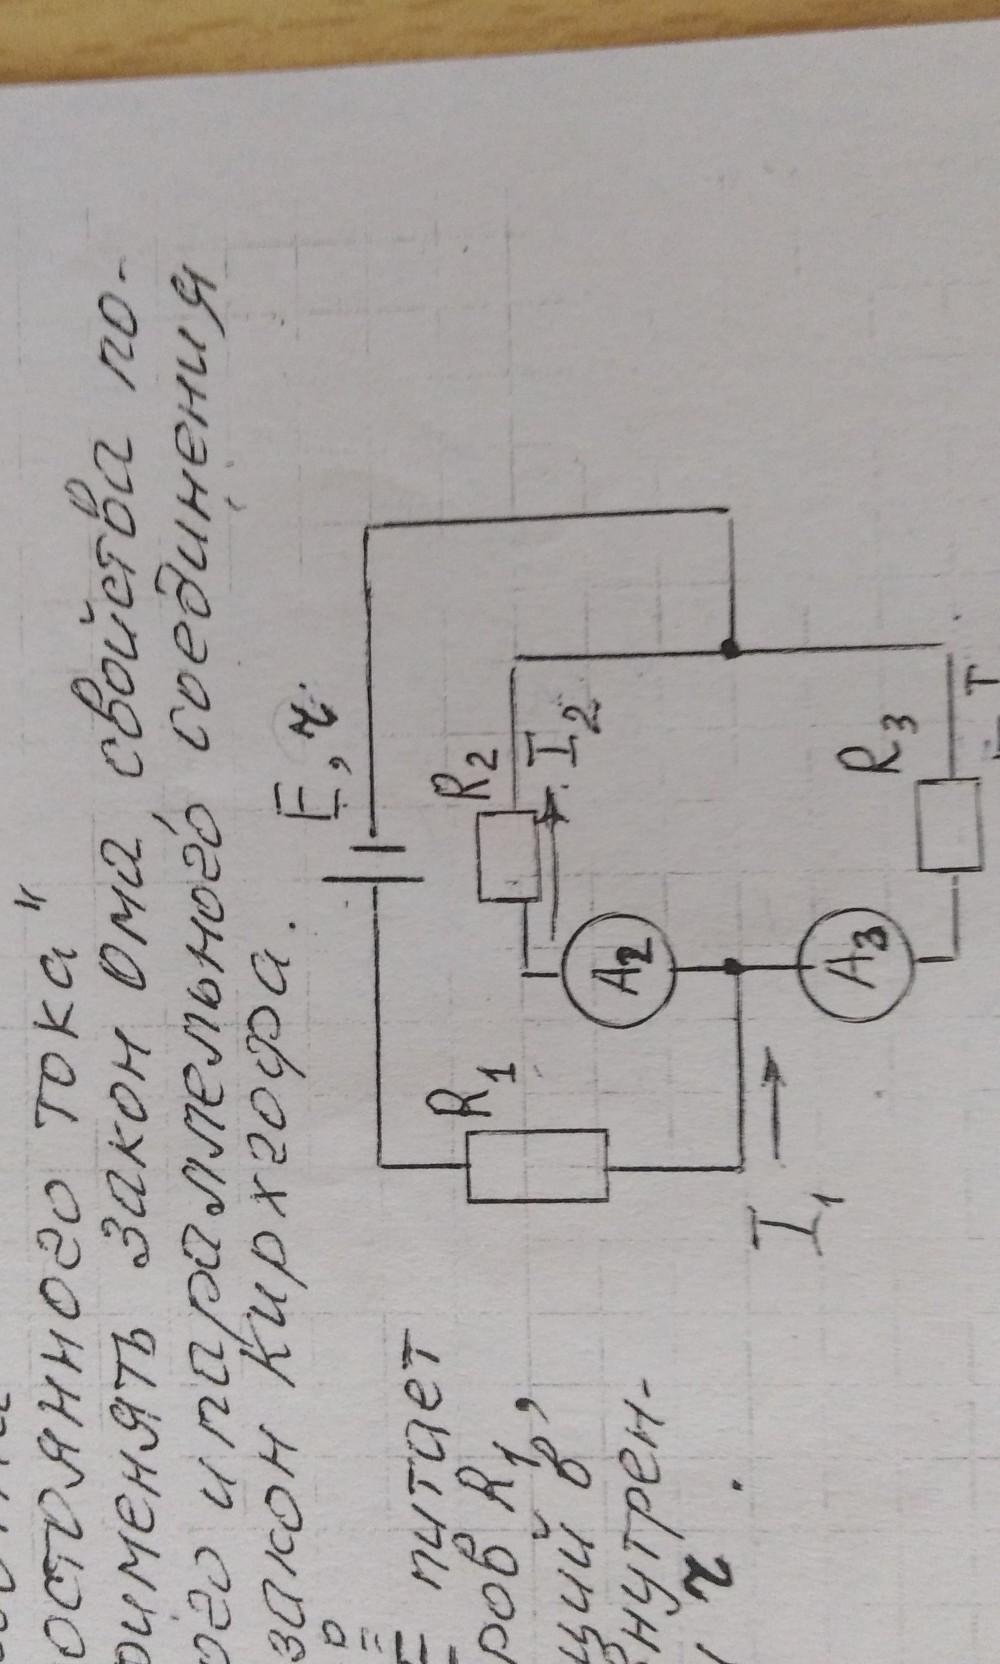 остоянного тока"
рименять закон Ома, свойства по-
ого и параллельного соединения
закон Кирхгофа.
E питает
ров R1,
щий в,
нутрен-
r.
E, r.
R1
R2
I2
A2
A3
R3
I1